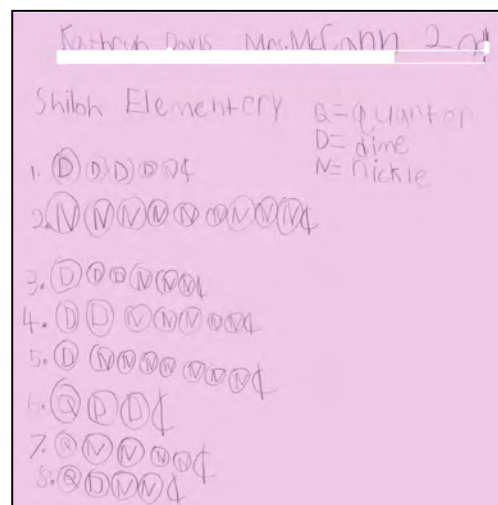 Kathryn Davis Mrs. McCann 2nd
Shiloh Elementery Q=Quarter
D= dime
N= nickle
1. D D D D N ¢
2. N N N N N N N N N ¢
3. D D D N N N ¢
4. D D N N N N N ¢
5. D N N N N N N N ¢
6. Q D D ¢
7. Q N N N N ¢
8. Q D N N ¢